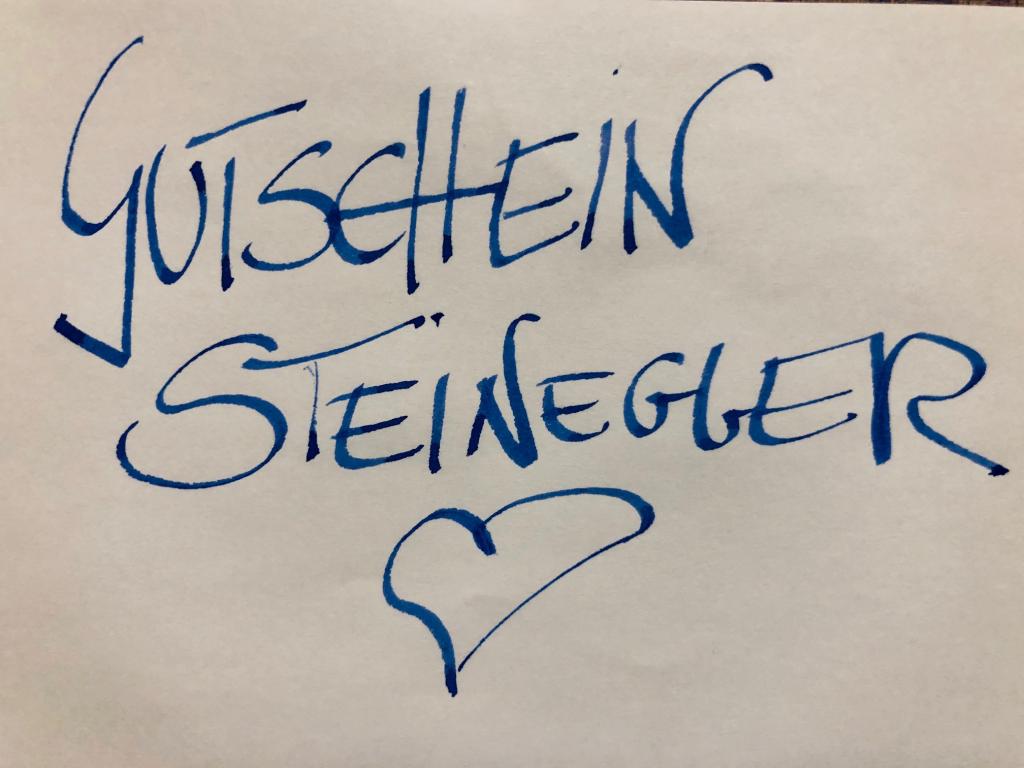 GUTSCHEIN
STEINEGGER